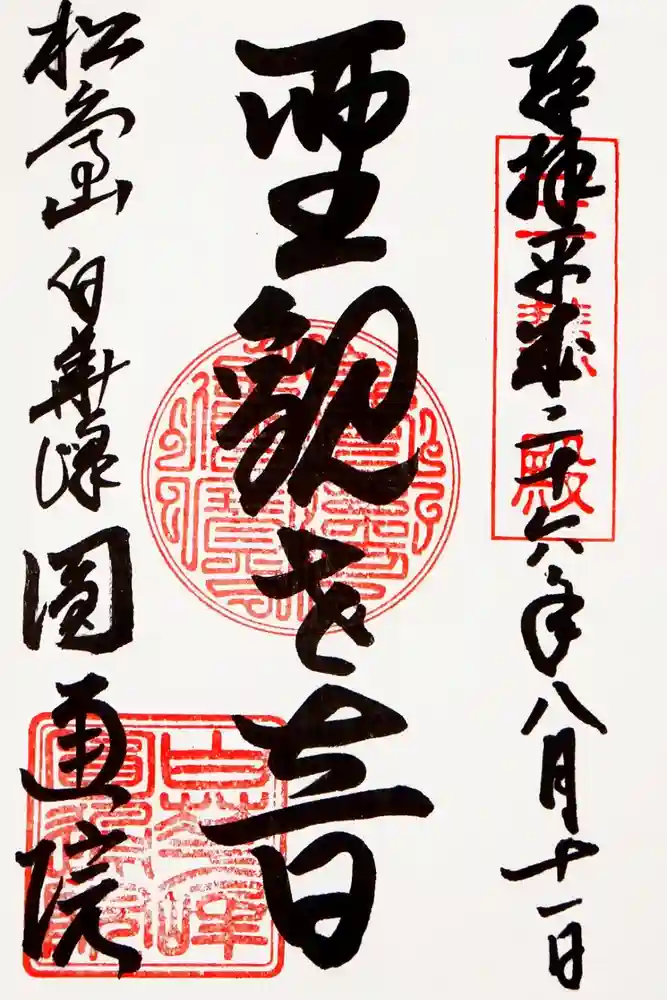 奉拝平成二十六年八月十一日
三慧殿
聖観世音
松島白華峰圓通院
白華峰